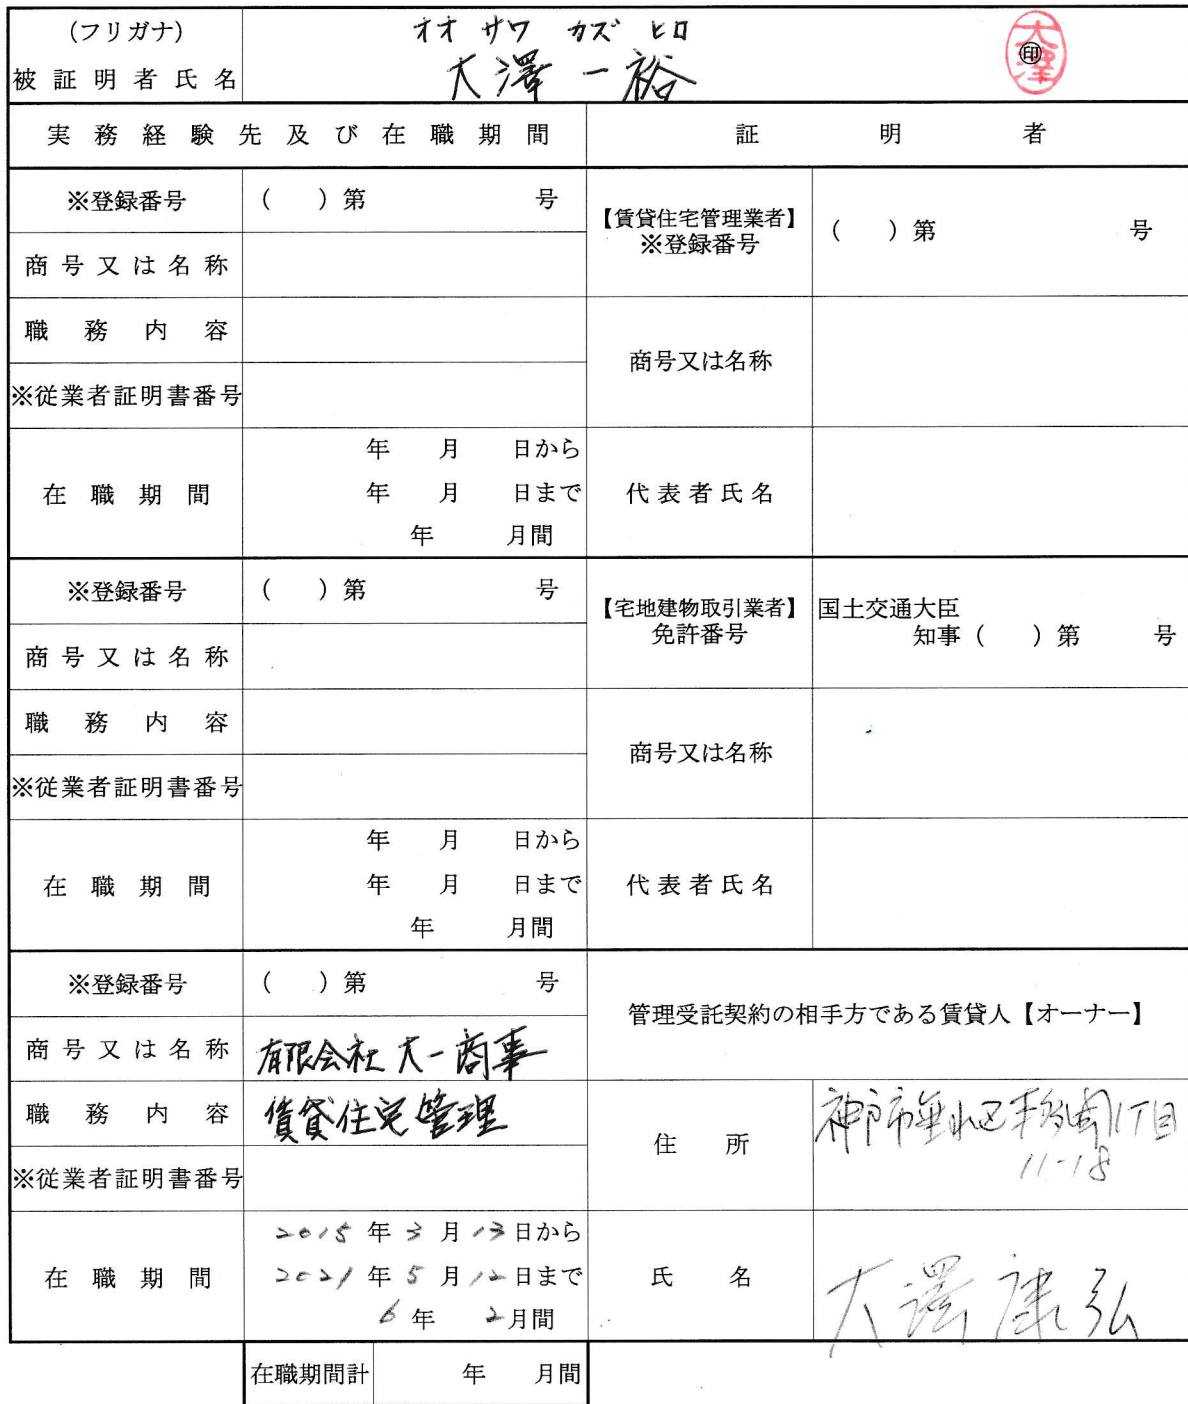 (フリガナ) オオ サワ カズ ヒロ
被証明者氏名 大澤 一裕 ㊞ 大澤
実務経験先及び在職期間 証明者
※登録番号 ( )第 号
【賃貸住宅管理業者】
※登録番号 ( )第 号
商号又は名称
職務内容
商号又は名称
※従業者証明書番号
在職期間
年 月 日から
年 月 日まで
年 月間
代表者氏名
※登録番号 ( )第 号
【宅地建物取引業者】
免許番号
国土交通大臣
知事( )第 号
商号又は名称
職務内容
商号又は名称
※従業者証明書番号
在職期間
年 月 日から
年 月 日まで
年 月間
代表者氏名
※登録番号 ( )第 号
管理受託契約の相手方である賃貸人【オーナー】
商号又は名称 有限会社 大一商事
職務内容 賃貸住宅管理
住所
神戸市垂水区 1丁目
11-18
※従業者証明書番号
在職期間
2015年3月13日から
2021年5月12日まで
6年 2月間
氏名 大澤康弘
在職期間計 年 月間